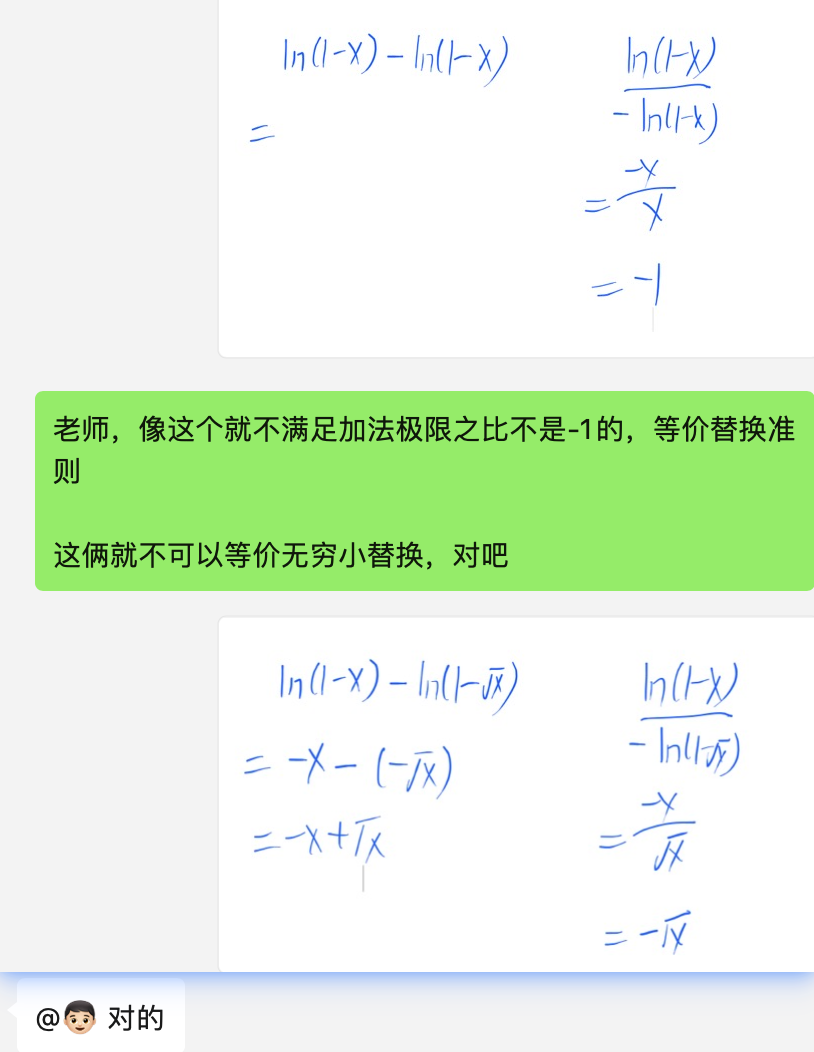 ln(1-x) - ln(1-x)
=
ln(1-x)
- ln(1-x)
= -x
x
= -1
老师，像这个就不满足加法极限之比不是-1的，等价替换准
则
这俩就不可以等价无穷小替换，对吧
ln(1-x) - ln(1-√x)
= -x - (-√x)
= -x + √x
ln(1-x)
- ln(1-√x)
= -x
√x
= -√x
@👦🏻 对的